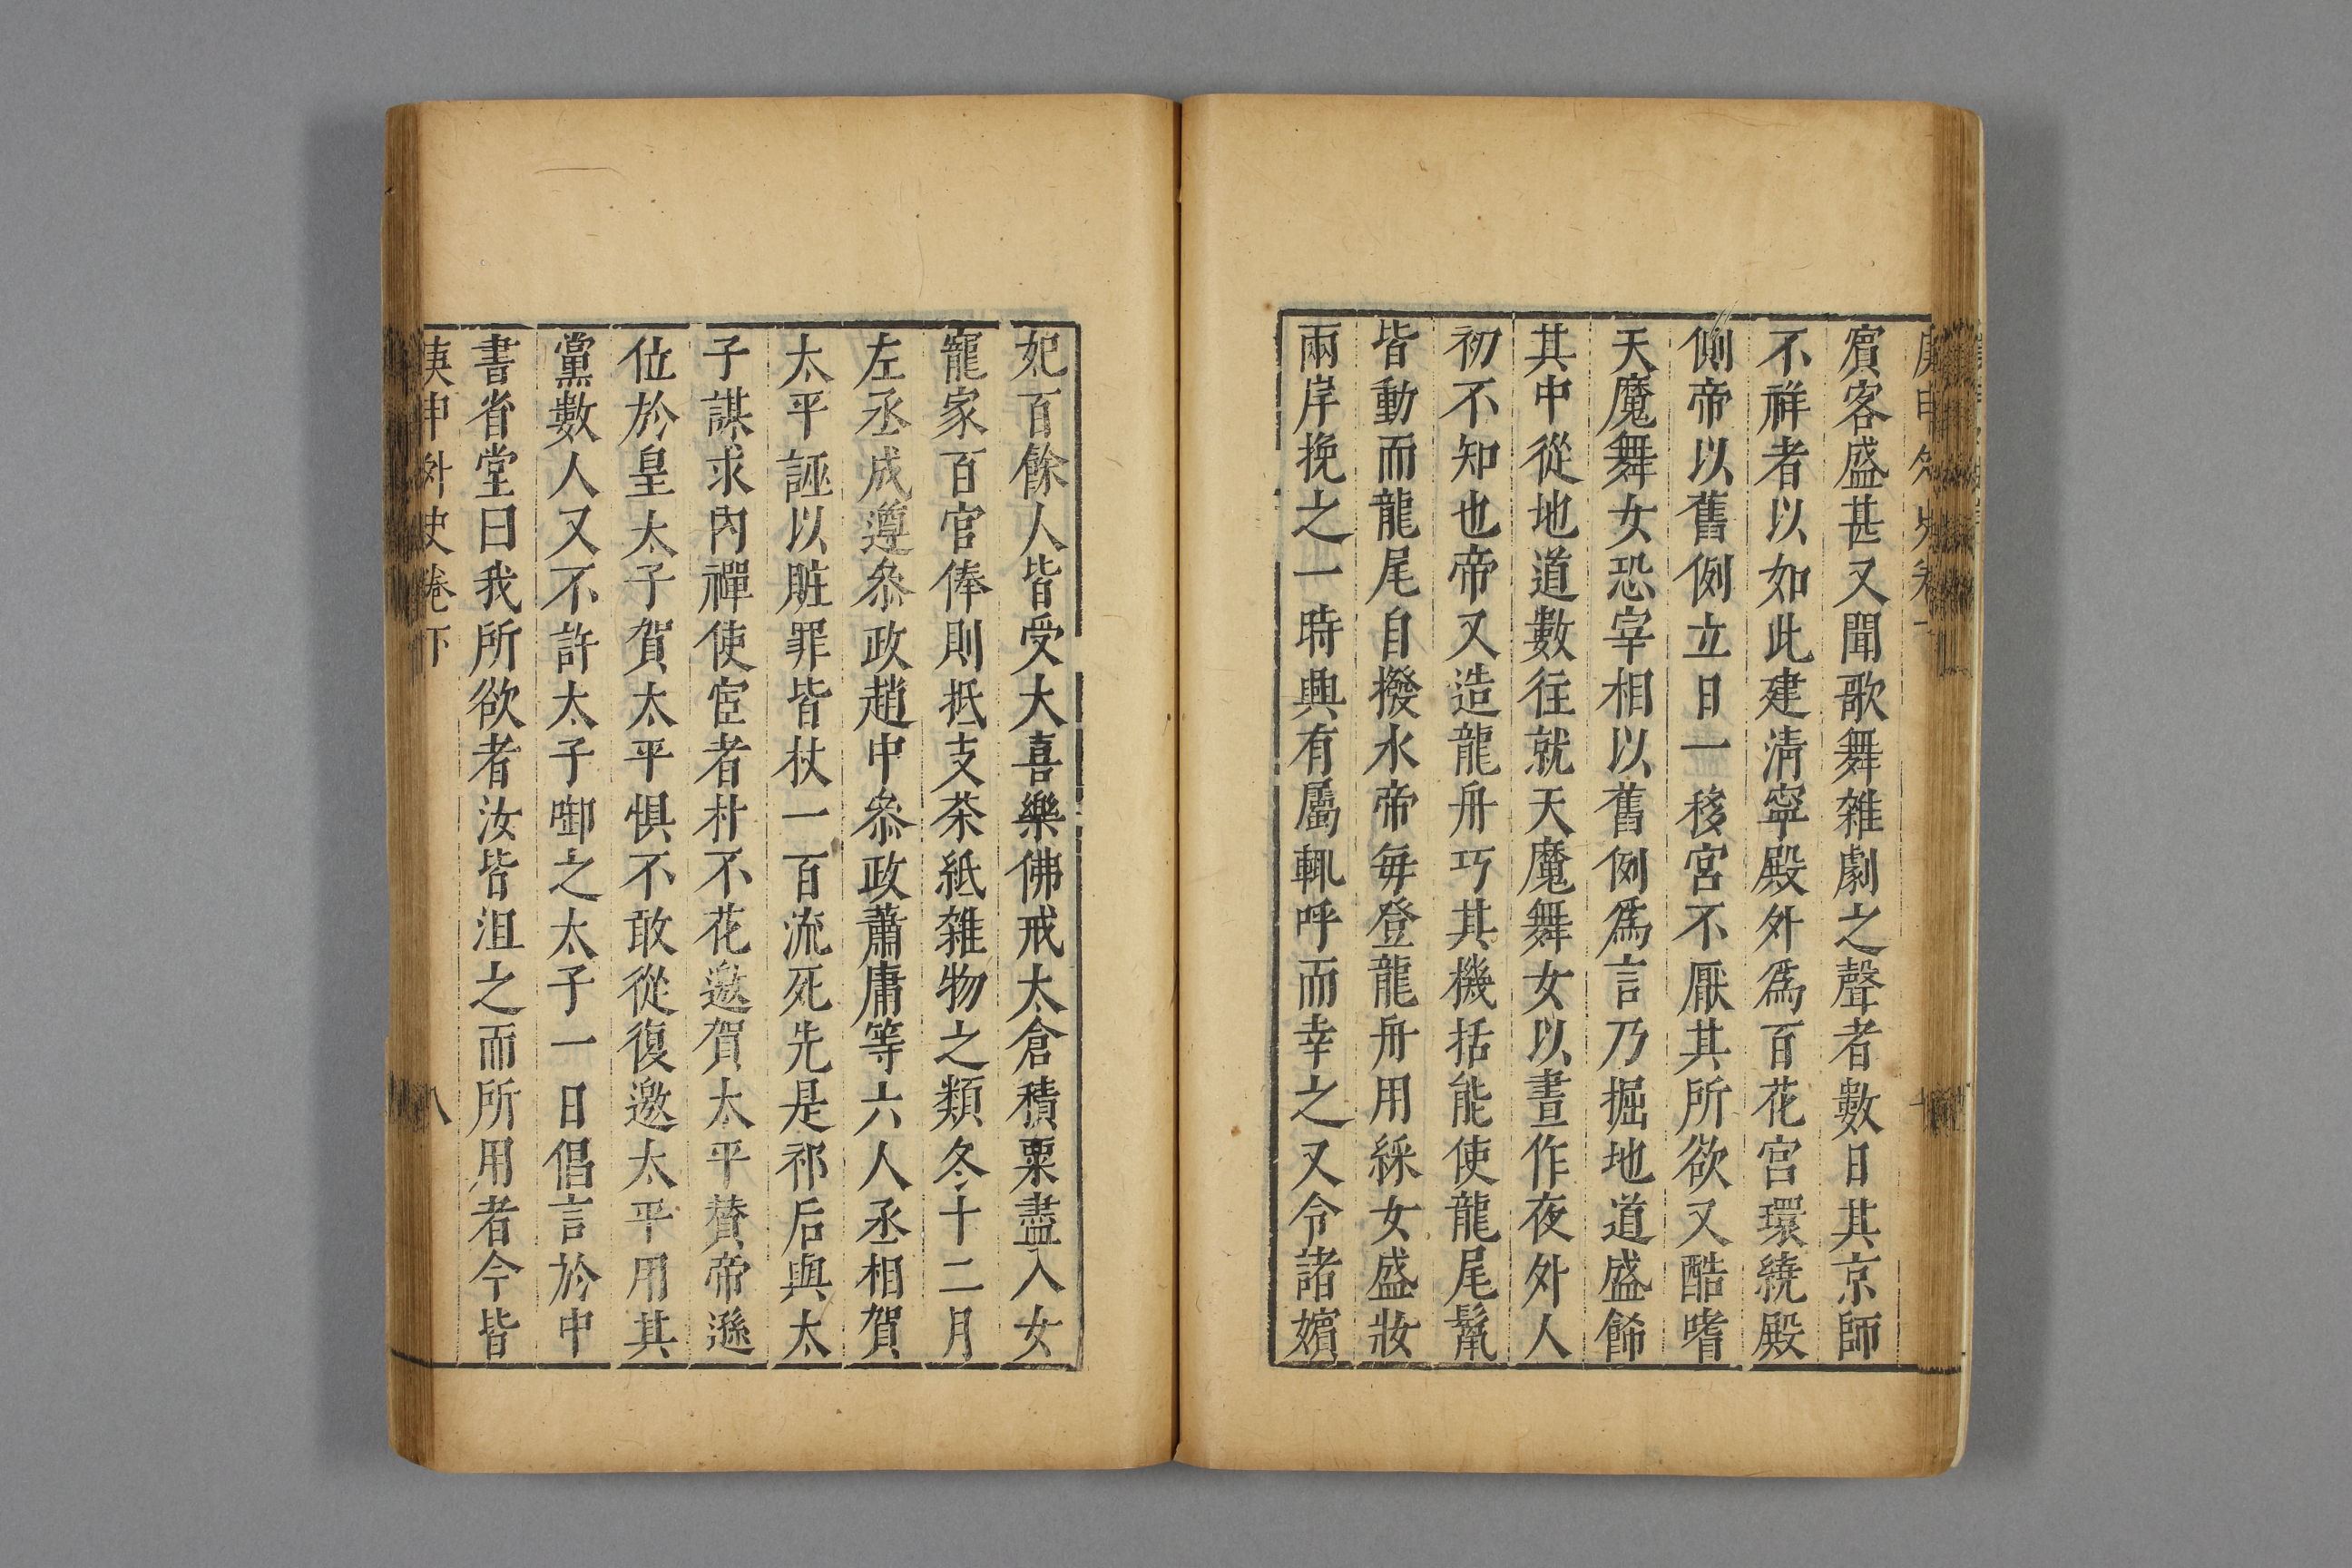 賔客盛甚又聞歌舞雜劇之聲者數日其京師
不祥者以如此建淸寜殿外爲百花宫環繞殿
側帝以舊例立日一移宮不厭其所欲又酷嗜
天魔舞女恐宰相以舊例爲言乃掘地道盛餙
其中從地道數往就天魔舞女以晝作夜外人
初不知也帝又造龍舟巧其機括能使龍尾鬣
皆動而龍尾自撥水帝每登龍舟用綵女盛妝
兩岸挽之一時興有屬輒呼而幸之又令諸嬪
妃百餘人皆受大喜樂佛戒太倉積粟盡入女
寵家百官俸則抵支茶紙雜物之類冬十二月
左丞成遵叅政趙中叅政蕭庸等六人丞相賀
太平誣以賍罪皆杖一百流死先是祁后與太
子謀求內禪使宦者朴不花邀賀太平賛帝遜
位於皇太子賀太平惧不敢從復邀太平用其
黨數人又不許太子啣之太子一日倡言於中
書省堂曰我所欲者汝皆沮之而所用者今皆
庚申外史卷下
八